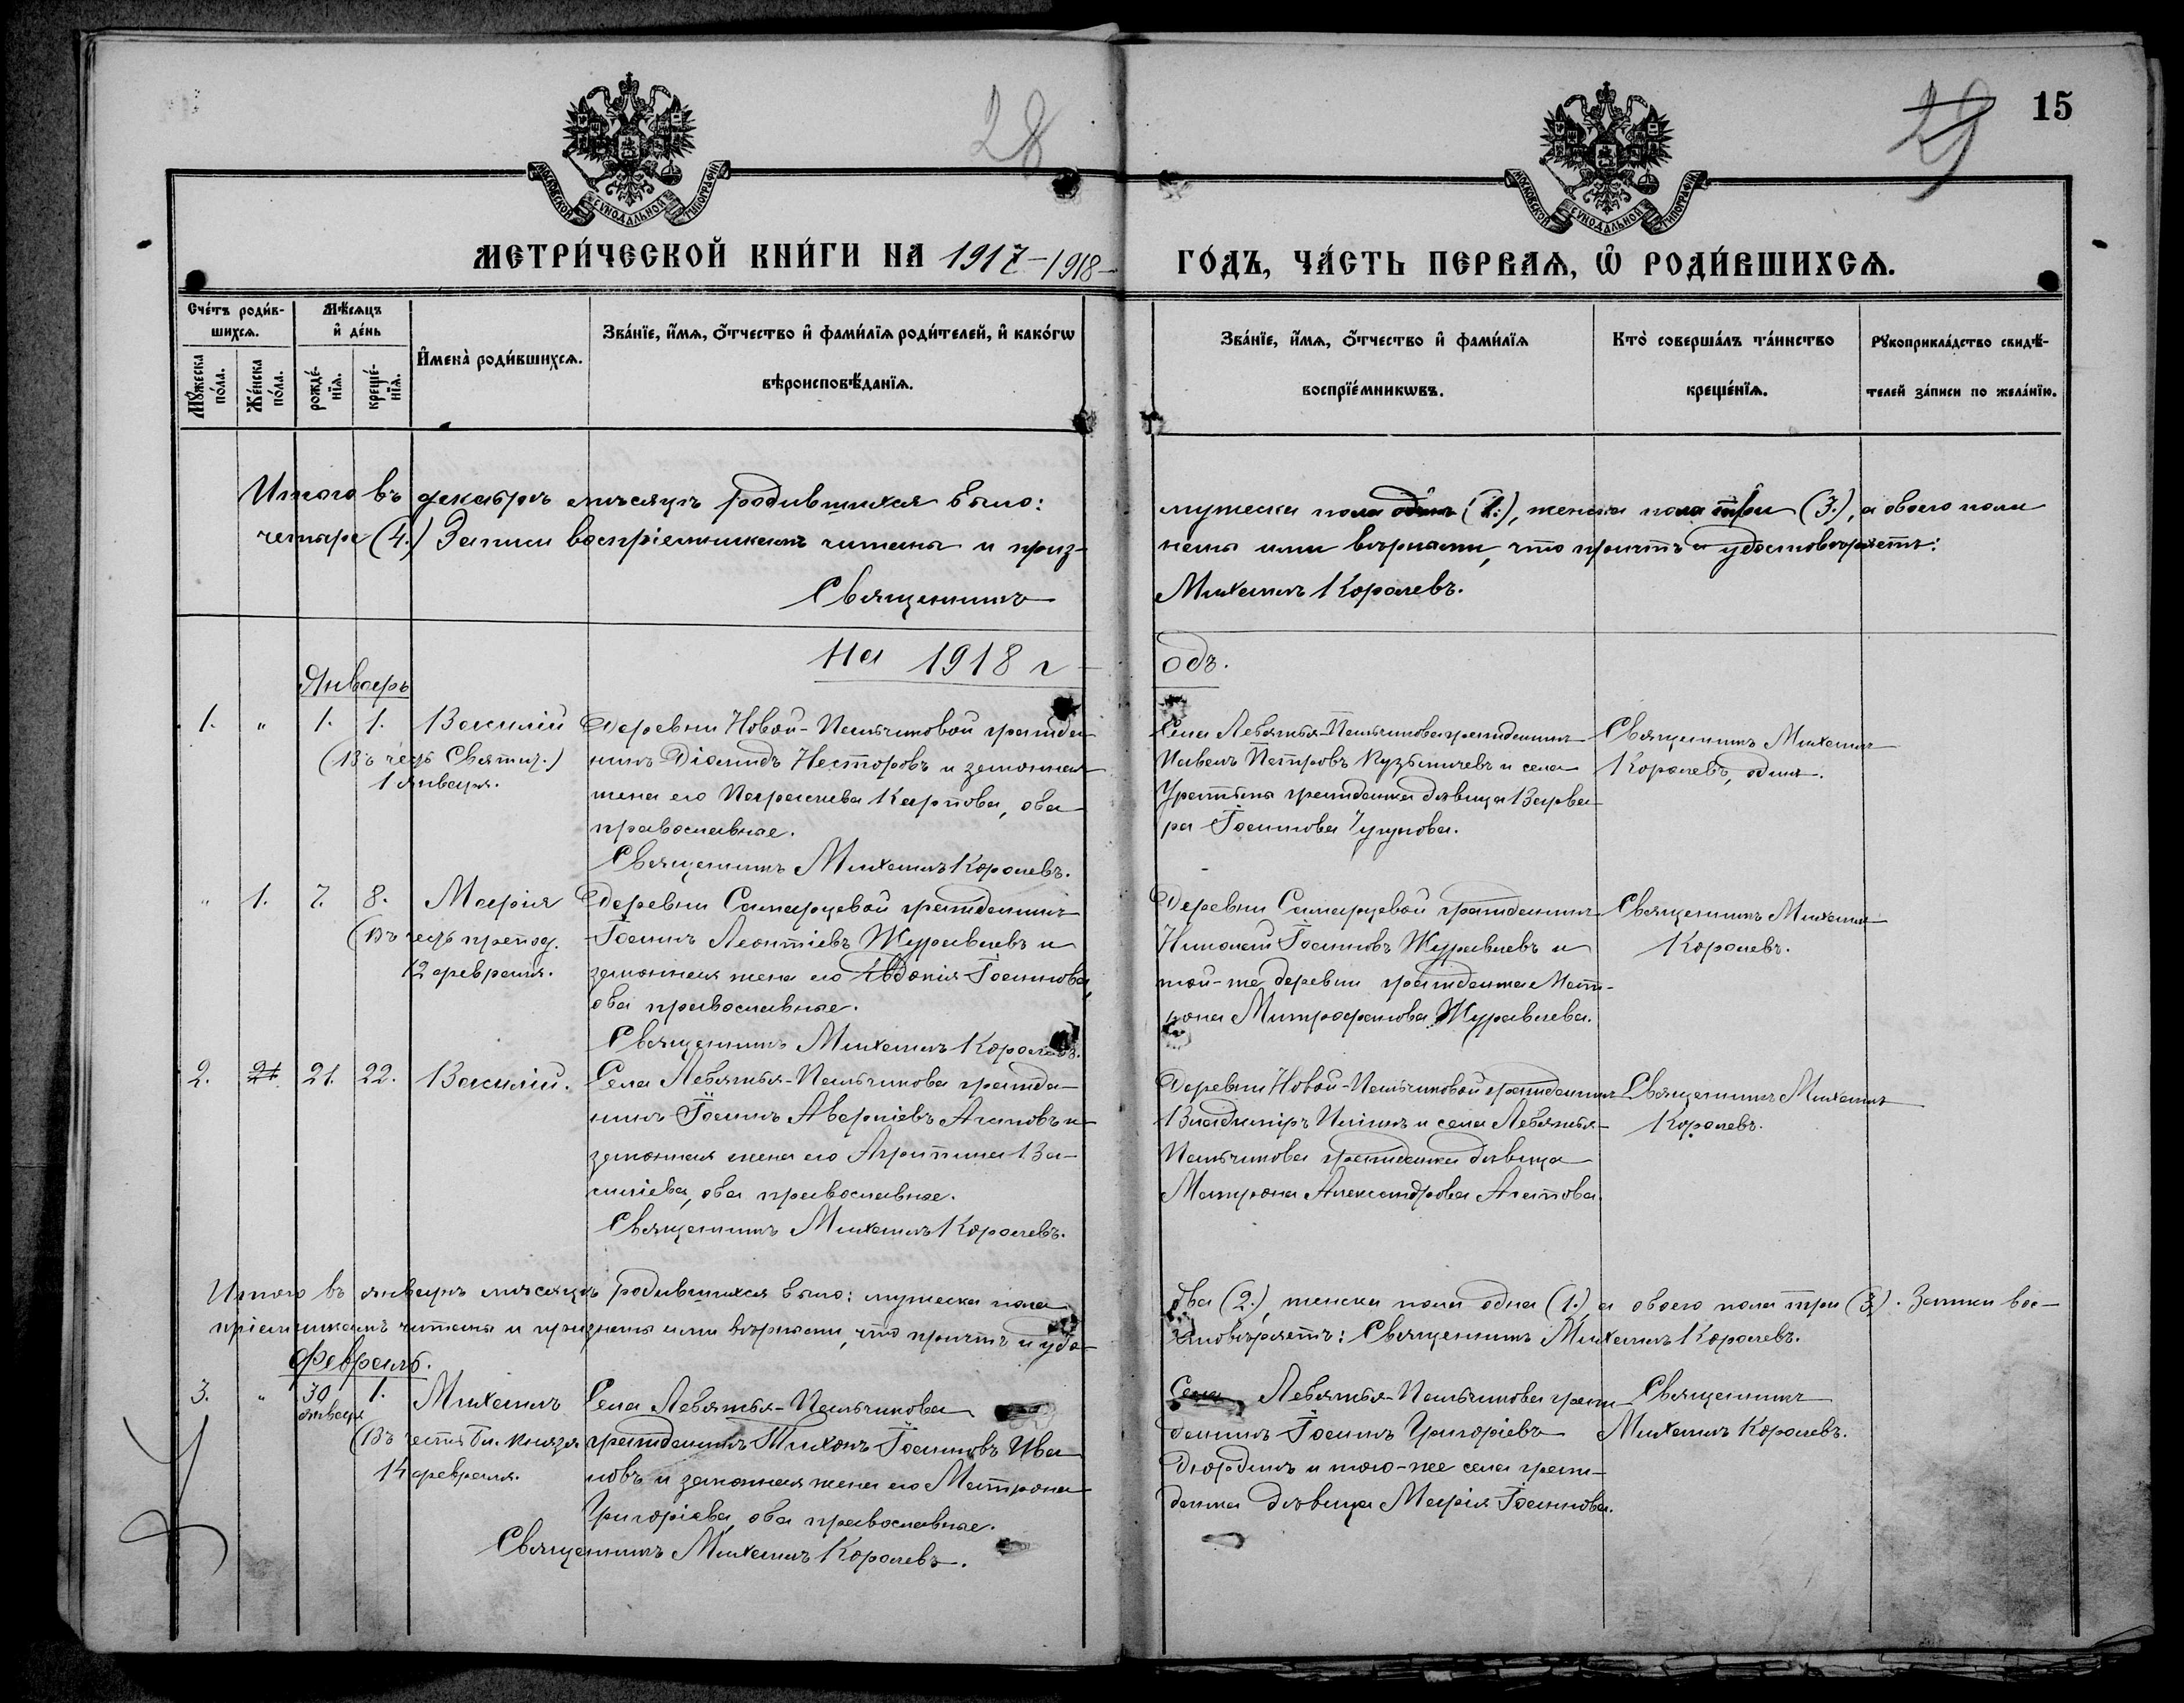 28
29
15
МОСКОВСКОЙ СѴНОДАЛЬНОЙ ТИПОГРАФІИ
МОСКОВСКОЙ СѴНОДАЛЬНОЙ ТИПОГРАФІИ
МЕТРИ́ЧЕСКОЙ КНИ́ГИ НА 1917-1918-
ГО́ДЪ, ЧА́СТЬ ПЕРВАѦ, Ѡ҆ РОДИ́ВШИХСѦ.
Сче́тъ роди́в-
шихсѧ.
Мѣ́сѧцъ
и҆ де́нь
Мꙋ́жеска
по́ла.
Же́нска
по́ла.
рожде́-
нїѧ.
креще́-
нїѧ.
И҆мена̀ роди́вшихсѧ.
Зва́нїе, и҆́мѧ, ѻ҆́тчество и҆ фами́лїѧ роди́телей, и҆ како́гѡ
вѣроисповѣ́данїѧ.
Зва́нїе, и҆́мѧ, ѻ҆́тчество и҆ фами́лїѧ
воспрїе́мникѡвъ.
Кто̀ соверша́лъ та́инство
креще́нїѧ.
Рꙋкоприкла́дство свидѣ́-
телей за́писи по жела́нїю.
Итого въ декабрѣ мѣсяцѣ родившихся было:
мужеска пола одинъ (1.), женска пола три (3.), а обоего пола
четыре (4.) Записи воспріемникамъ читаны и приз-
наны ими вѣрными, что причтъ и удостовѣряетъ:
Священникъ
Михаилъ Королевъ.
На 1918 г-
одъ.
Январь
1. " 1. 1. Василій
(Въ честь Святит.)
1 января.
Деревни Новой-Пальчиковой гражда-
нинъ Діомидъ Несторовъ и законная
жена его Параскева Карпова, оба
православные.
Священникъ Михаилъ Королевъ.
Села Лебяжья-Пальчикова гражданинъ
Павелъ Петровъ Кузьмичевъ и села
гражданка дѣвица Варва-
ра Іоаннова Чугунова.
Священникъ Михаилъ
Королевъ, одинъ.
" 1. 7. 8. Марія
(Въ честь препод.
12 февраля.
Деревни Самарцевой гражданинъ
Іоаннъ Леонтіевъ Журавлевъ и
законная жена его Евдокія Іоаннова,
оба православные.
Священникъ Михаилъ Королевъ.
Деревни Самарцевой гражданинъ
Николай Іоанновъ Журавлевъ и
той-же деревни гражданка Мат-
рона Митрофанова Журавлева.
Священникъ Михаилъ
Королевъ.
2. 21. 21. 22. Василій.
Села Лебяжья-Пальчикова гражда-
нинъ Іоаннъ Аверкіевъ Агаповъ и
законная жена его Агриппина Ва-
силіева, оба православные.
Священникъ Михаилъ Королевъ.
Деревни Новой-Пальчиковой гражданинъ
Владиміръ и села Лебяжья-
Пальчикова гражданка дѣвица
Матрона Александрова Агапова.
Священникъ Михаилъ
Королевъ.
Итого въ январѣ мѣсяцѣ родившихся было: мужеска пола
два (2.), женска пола одна (1.), а обоего пола три (3.). Записи вос-
пріемникамъ читаны и признаны ими вѣрными, что причтъ и удо-
стовѣряетъ: Священникъ Михаилъ Королевъ.
Февраль.
3. " 30 1. Михаилъ
января
(Въ честь Бл. князя
14 февраля.
Села Лебяжья-Пальчикова
гражданинъ Тихонъ Іоанновъ Ива-
новъ и законная жена его Матрона
Григоріева, оба православные.
Священникъ Михаилъ Королевъ.
Села Лебяжья-Пальчикова граж-
данинъ Іоаннъ Григоріевъ
Дюрдинъ и того-же села граж-
данка дѣвица Марія Іоаннова.
Священникъ
Михаилъ Королевъ.